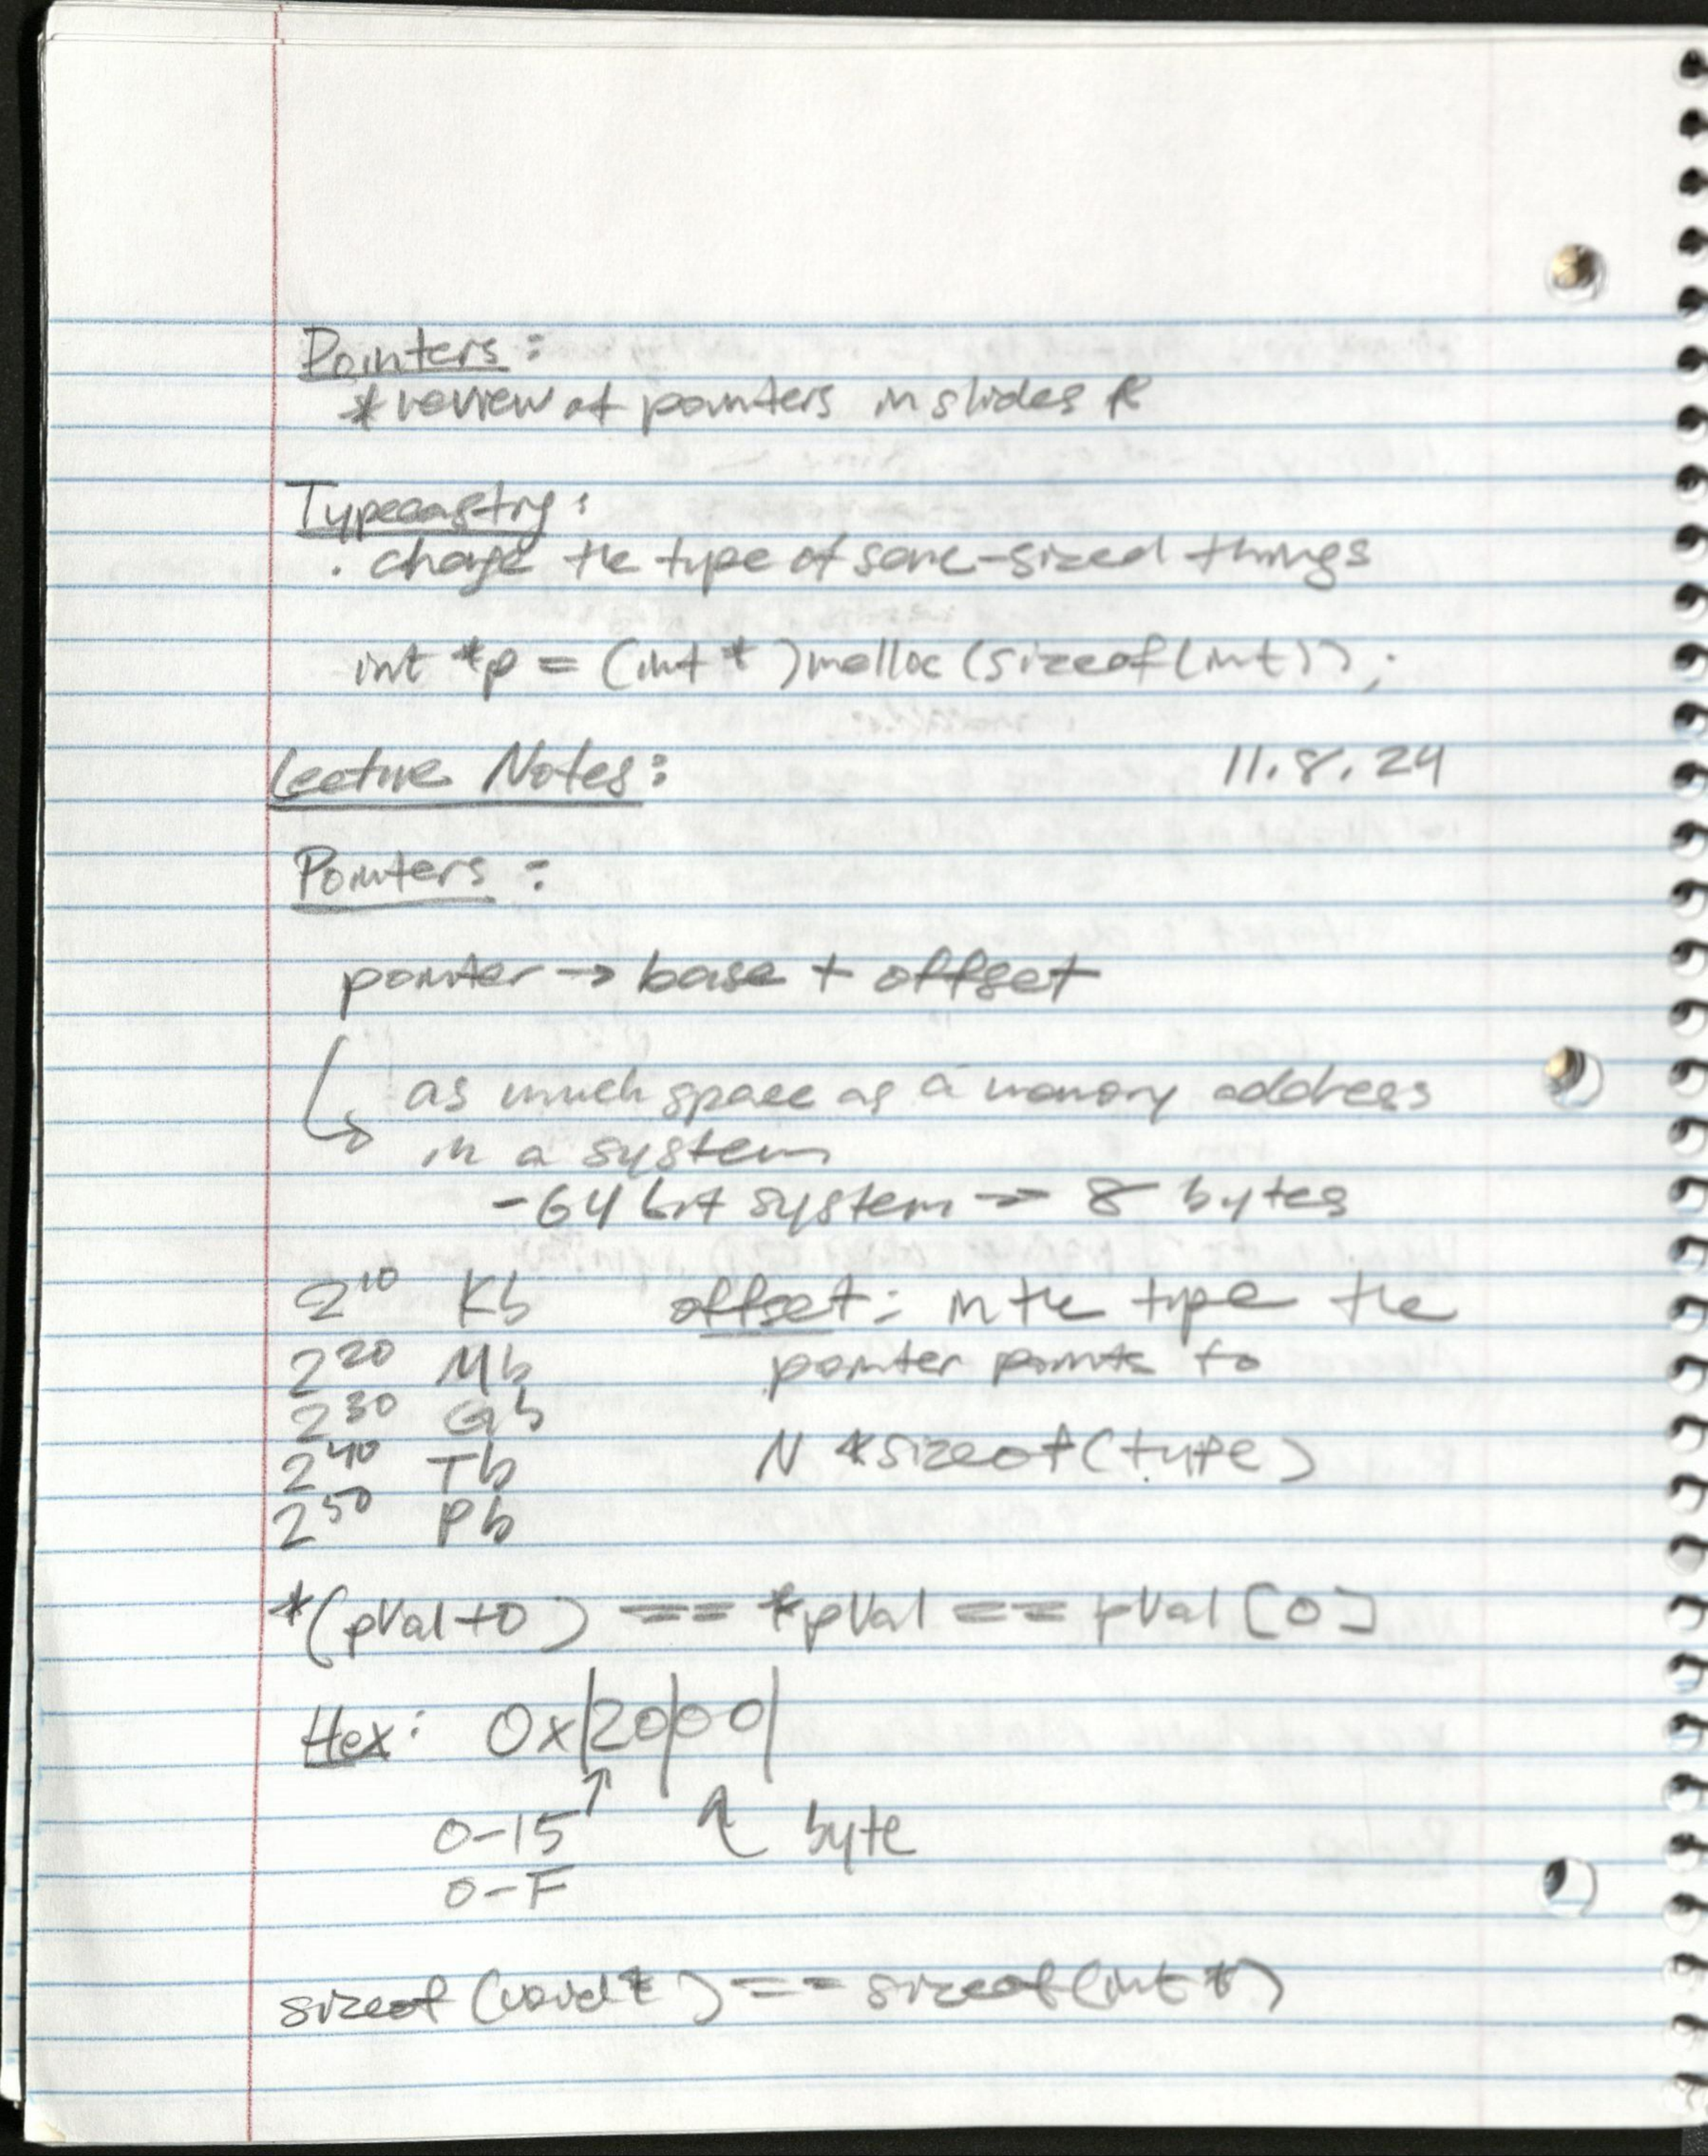 Pointers:
* review of pointers in slides *
Typecasting:
. change the type of same-sized things
int *p = (int *)malloc(sizeof(int));
Lecture Notes: 11.8.24
Pointers:
pointer → base + offset
as much space as a memory address
in a system
- 64 bit system → 8 bytes
2^10 Kb offset: in the type the
2^20 Mb pointer points to
2^30 Gb
2^40 Tb N *sizeof(type)
2^50 Pb
*(pVal+0) == *pVal == pVal[0]
Hex: 0x|20|00|
0-15 ↑ byte
0-F
sizeof(void*) == sizeof(int*)